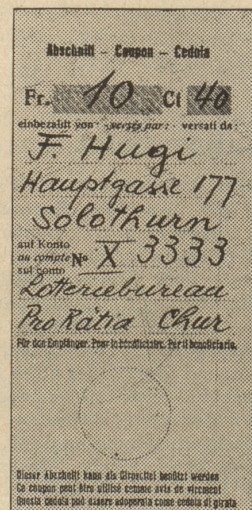 Abschnitt – Coupon – Cedola
Fr. 10 Ct 40
einbezahlt von · versés par: · versati da:
F. Hugi
Hauptgasse 177
Solothurn
auf Konto
au compte No X 3333
sul conto
Lotteriebureau
Pro Rätia Chur
Für den Empfänger. Pour le bénéficiaire. Per il beneficiario.
Dieser Abschnitt kann als Girozettel benützt werden
Ce coupon peut être utilisé comme avis de virement
Questa cedola può essere adoperata come cedola di girata